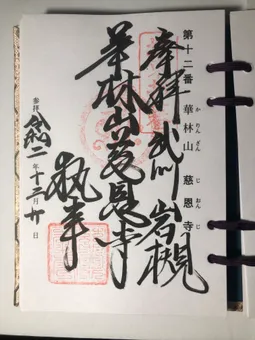 第十二番 華林山 慈恩寺
かりんざん じおんじ
奉拝 武州 岩槻
華林山 慈恩寺
執事
参拝 令和二年十二月廿日